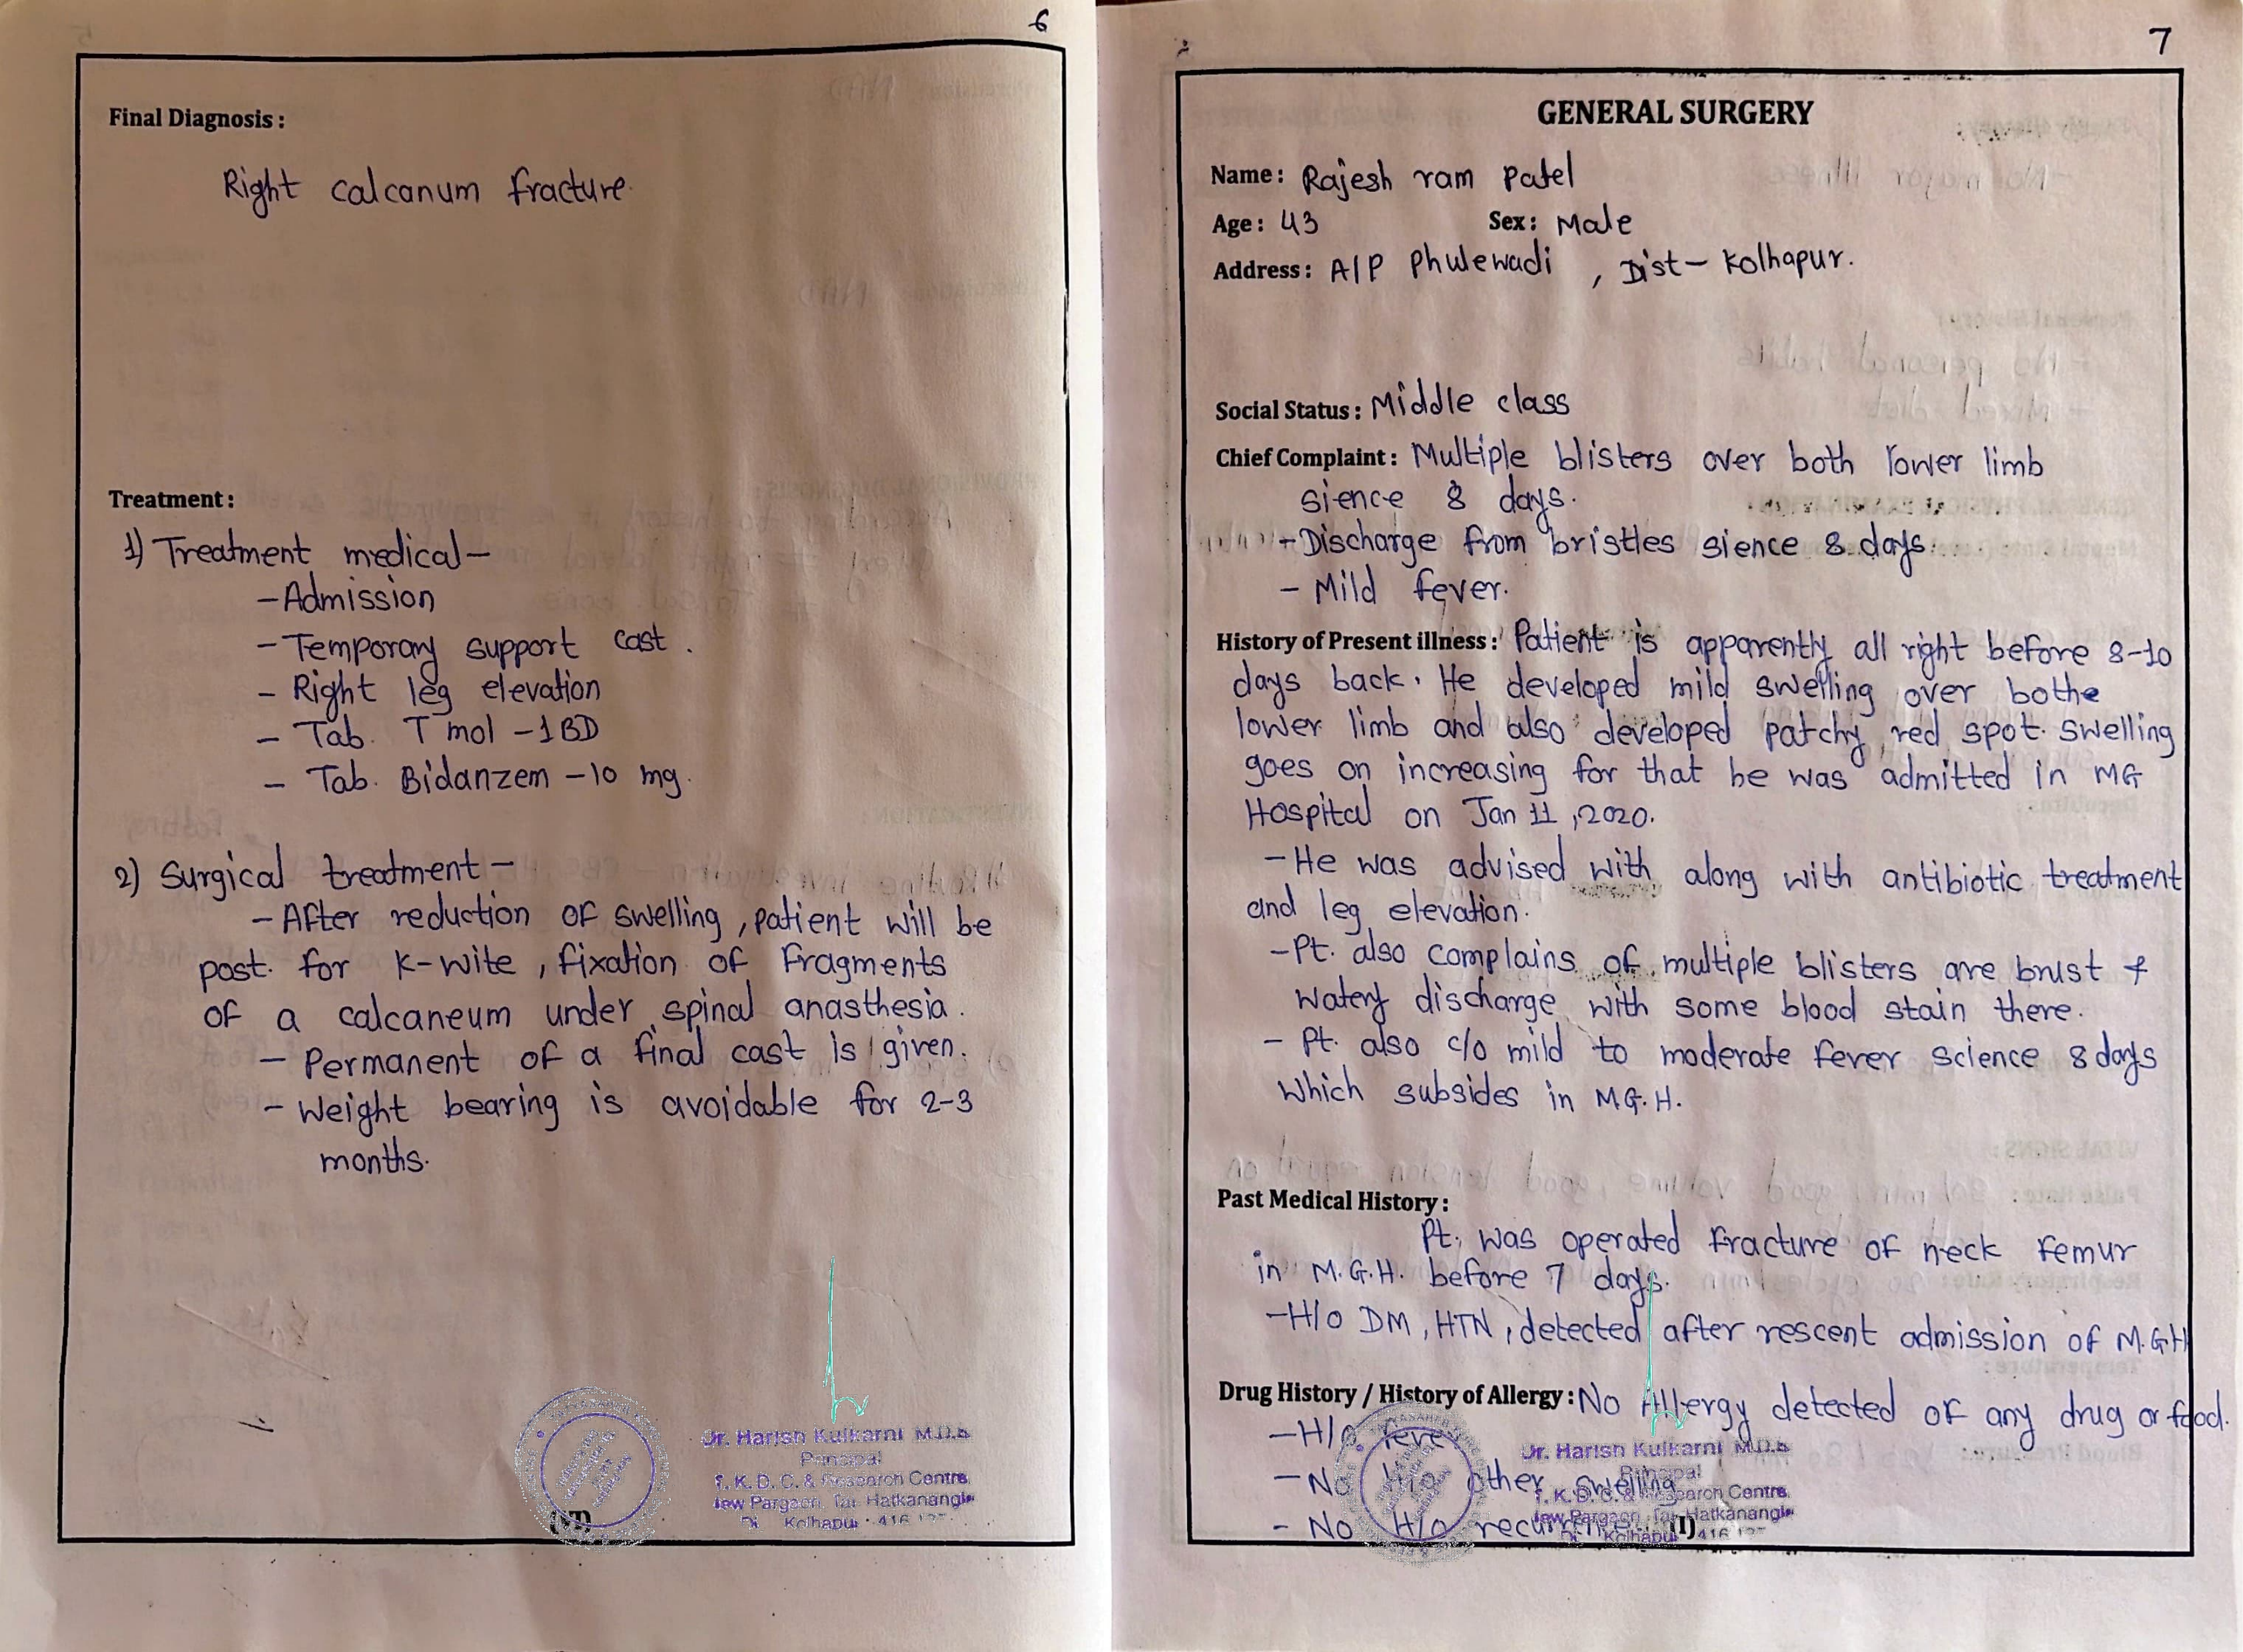 6
Final Diagnosis :
Right calcanum fracture.
Treatment :
1) Treatment medical —
— Admission
— Temporary support cast .
— Right leg elevation
— Tab. T mol — 1 BD
— Tab. Bidanzem — 10 mg.
2) Surgical treatment —
— After reduction of swelling , patient will be
post. for K-wite , fixation of fragments
of a calcaneum under spinal anasthesia .
— Permanent of a final cast is given.
— Weight bearing is avoidable for 2-3
months.
(VI)
Dr. Harish Kulkarni M.D.S
Principal
T. K. D. C. & Research Centre
New Pargaon, Tal. Hatkanangle
Di Kolhapur - 416
7
GENERAL SURGERY
Name : Rajesh ram Patel
Age : 43 Sex : Male
Address : A/P Phulewadi , Dist — Kolhapur.
Social Status : Middle class
Chief Complaint : Multiple blisters over both lower limb
sience 8 days.
— Discharge from bristles sience 8 days.
— Mild fever.
History of Present illness : Patient is apparently all right before 8-10
days back. He developed mild swelling over bothe
lower limb and also developed patchy red spot. swelling
goes on increasing for that he was admitted in MG
Hospital on Jan 11 , 2020.
— He was advised with along with antibiotic treatment
and leg elevation.
— Pt. also complains of multiple blisters are brust &
watery discharge with some blood stain there.
— Pt. also c/o mild to moderate fever science 8 days
which subsides in M.G.H.
Past Medical History :
Pt. was operated fracture of neck femur
in M.G.H. before 7 days.
— H/o DM , HTN , detected after rescent admission of M.G.H
Drug History / History of Allergy : No Allergy detected of any drug or food.
— H/o fever
— No H/o other swelling
— No H/o (I)
Dr. Harish Kulkarni M.D.S
Principal
T. K. D. C. & Research Centre
New Pargaon, Tal. Hatkanangle
Di Kolhapur 416